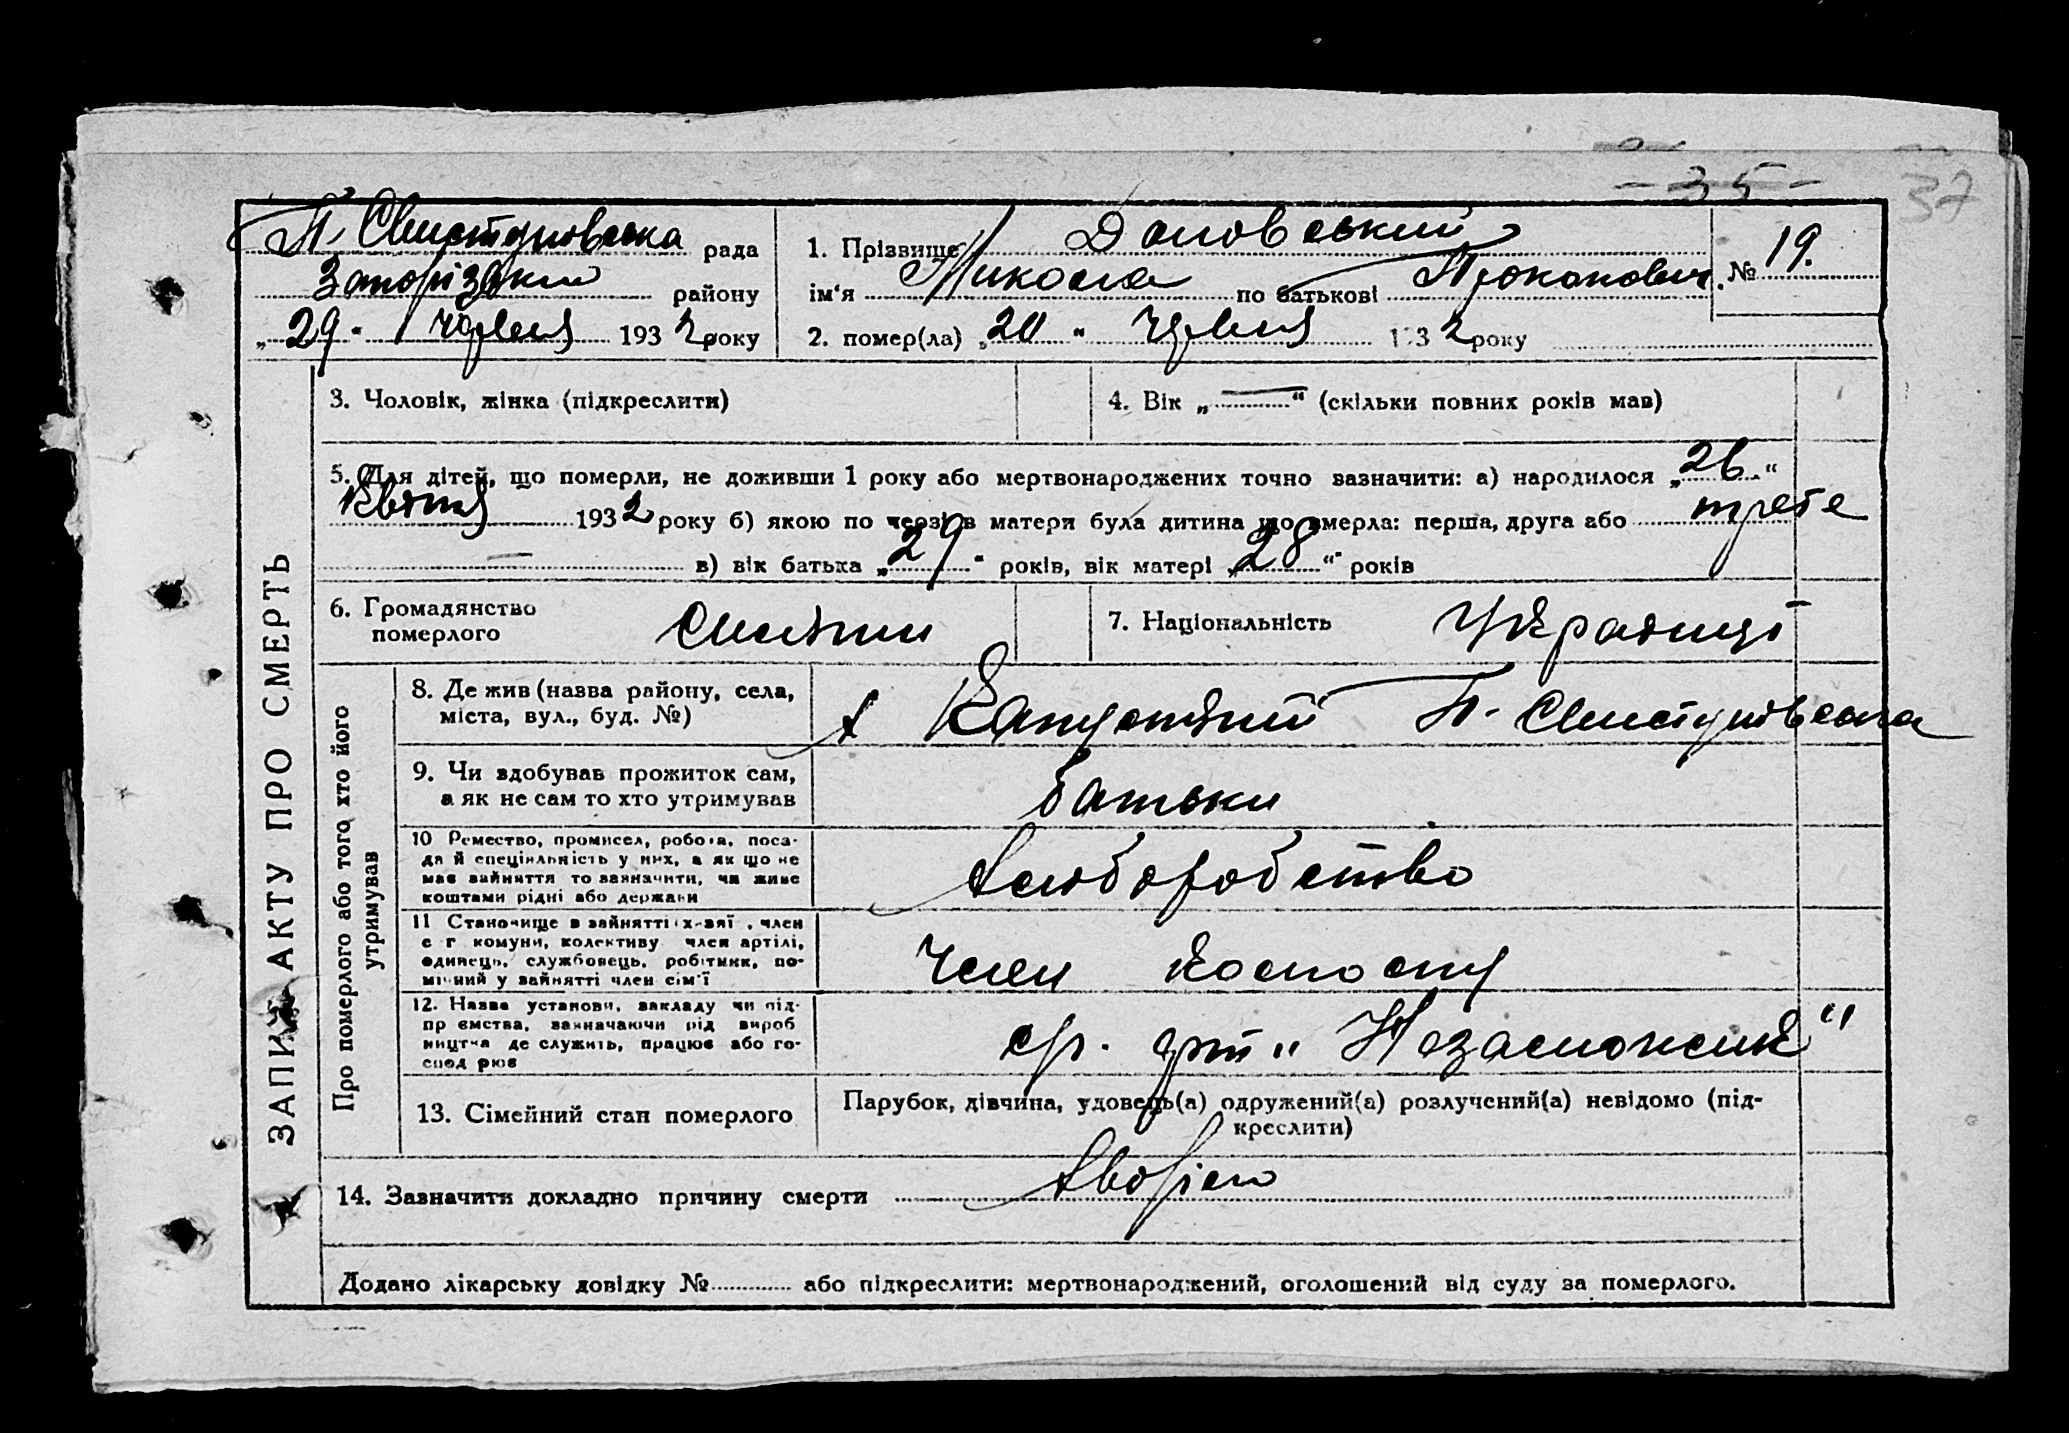 - 35 -
37
П. Свистуновська рада
Запорізьки району
„29“ червня 1932 року
1. Прізвище Доновський
ім'я Микола по батькові Проконович
№ 19.
2. помер(ла) „20“ червня 1932 року
ЗАПИС АКТУ ПРО СМЕРТЬ
3. Чоловік, жінка (підкреслити)
4. Вік „ — “ (скільки повних років мав)
5. Для дітей, що померли, не доживши 1 року або мертвонароджених точно зазначити: а) народилося „26“
Квітня 1932 року б) якою по черзі в матери була дитина що вмерла: перша, друга або третє
в) вік батька „29“ років, вік матері „28“ років
6. Громадянство
померлого
7. Національність Українці
Про померлого або того хто його
утримував
8. Де жив (назва району, села,
міста, вул., буд. №)
х Капустяний П. Свистуновська
9. Чи здобував прожиток сам,
а як не сам то хто утримував
батьки
10 Ремество, промисел, робота, поса-
да й спеціяльність у них, а як що не
має зайняття то зазначити, чи живе
коштами рідні або держави
хліборобство
11 Становище в зайнятті: х-зяї , член
с г комуни, колективу член артілі,
одинець, службовець, робітник, по-
мічний у зайнятті член сім'ї
Член колгоспу
12. Назва установи, закладу чи під-
пр ємства, зазначаючи рід вироб
ництва де служить, працює або го-
спод рює
ср. арт „Незаможник“
13. Сімейний стан померлого
Парубок, дівчина, удовець(а) одружений(а) розлучений(а) невідомо (під-
креслити)
14. Зазначити докладно причину смерти
Додано лікарську довідку № або підкреслити: мертвонароджений, оголошений від суду за померлого.